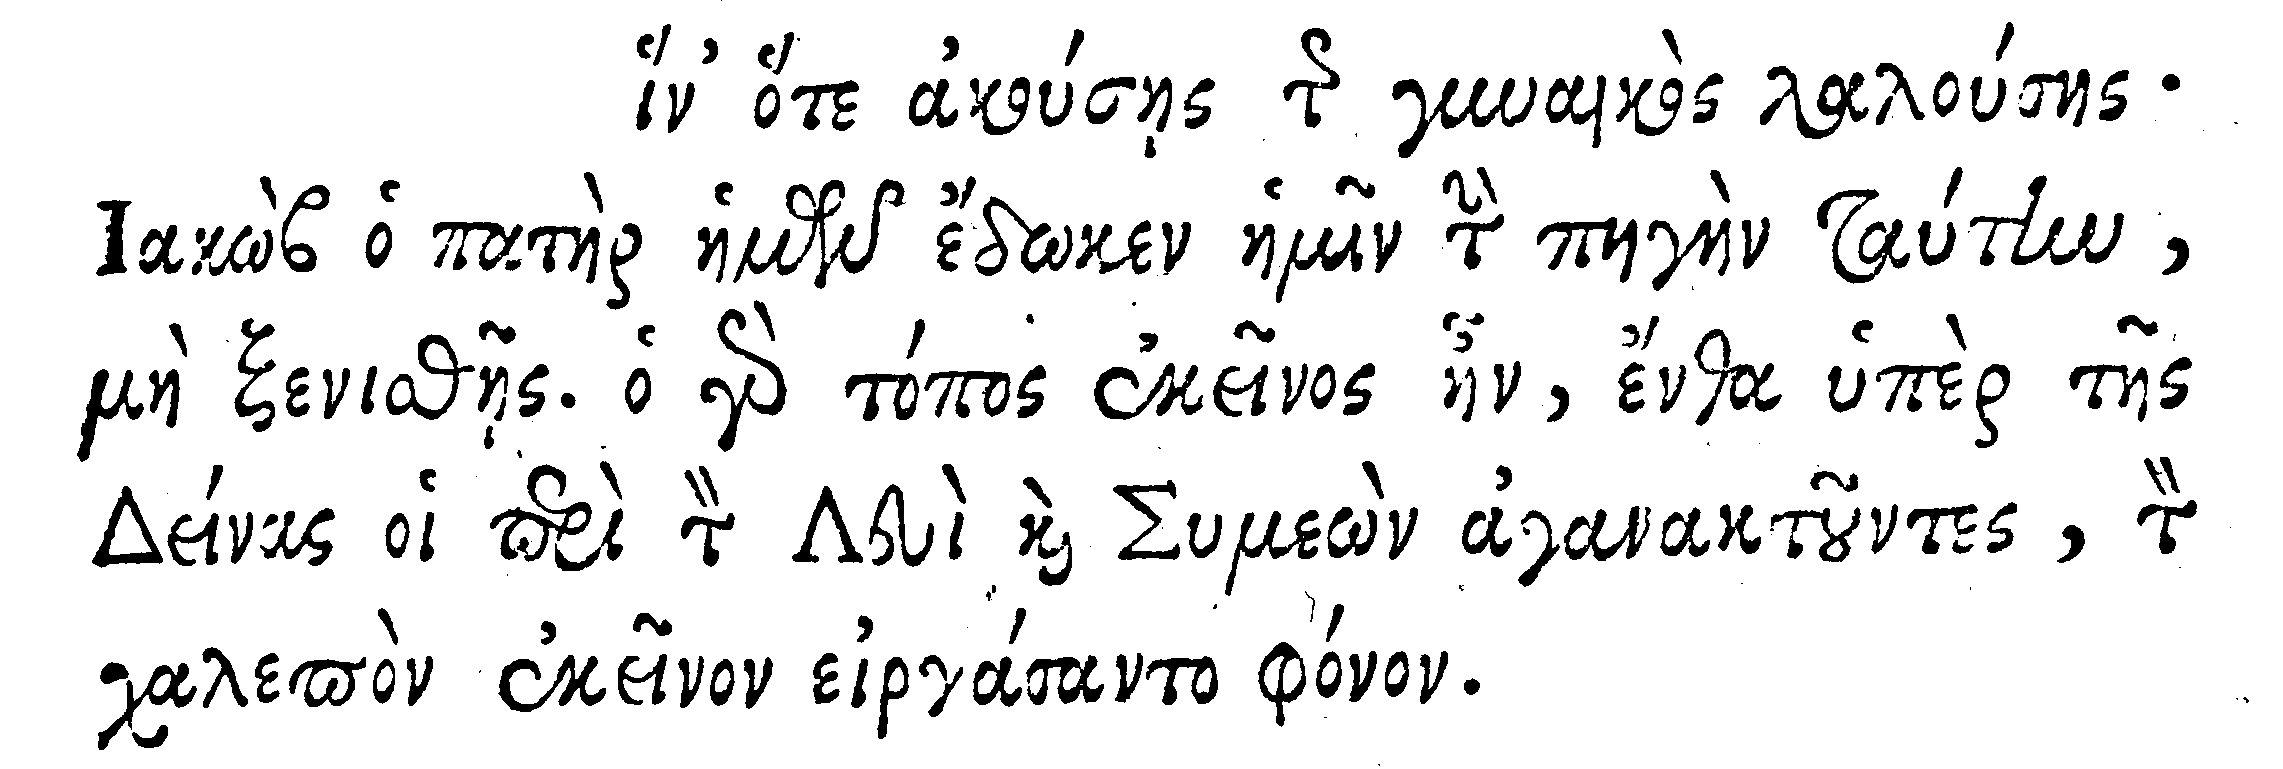 ἵν' ὅτε ἀκούσῃς τῆς γυναικὸς λαλούσης·
Ἰακὼβ ὁ πατὴρ ἡμῶν ἔδωκεν ἡμῖν τὴν πηγὴν ταύτην,
μὴ ξενισθῇς. ὁ γὰρ τόπος ἐκεῖνος ἦν, ἔνθα ὑπὲρ τῆς
Δείνας οἱ περὶ τὸν Λευὶ καὶ Συμεὼν ἀγανακτοῦντες, τὸν
χαλεπὸν ἐκεῖνον εἰργάσαντο φόνον.